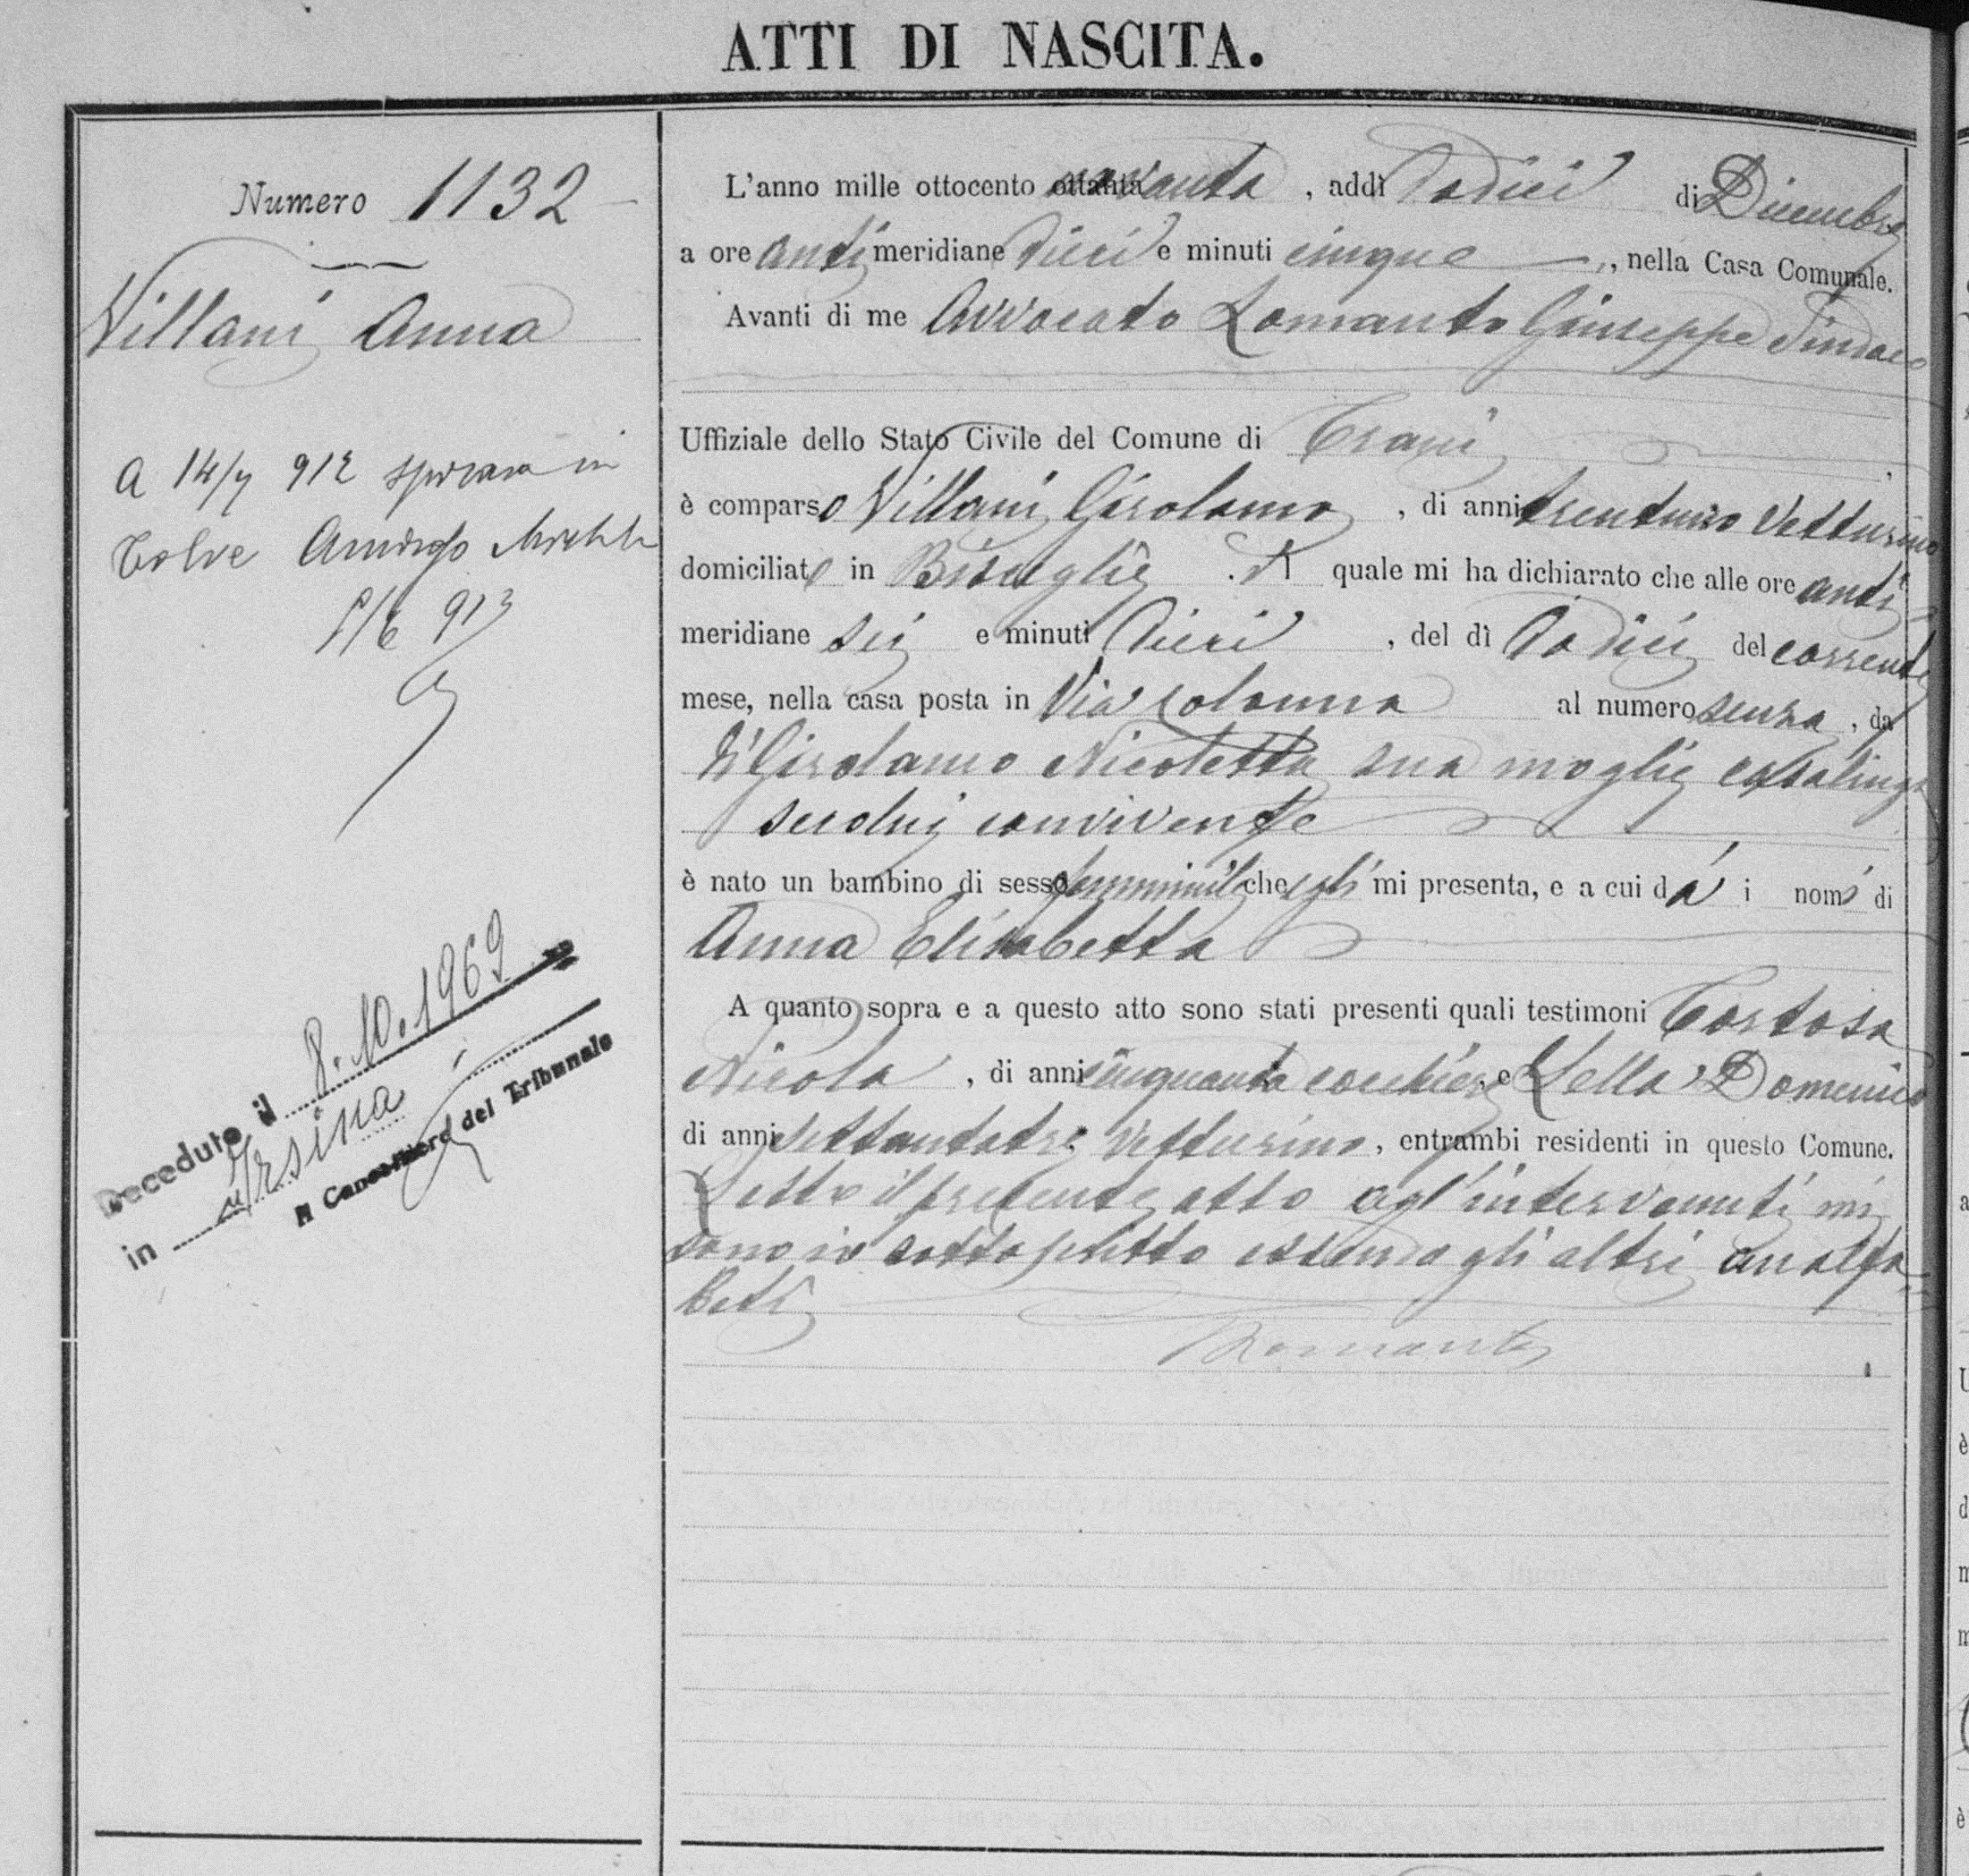 ATTI DI NASCITA.
Numero 1132
Villani Anna
A 14/7 912 sposava in
Tolve Amodeo Michele
913
Deceduta il 8.10.1969
in Irsina
Il Cancelliere del Tribunale
L'anno mille ottocento novanta, addì dodici di Dicembre
a ore anti meridiane dieci e minuti cinque, nella Casa Comunale.
Avanti di me Avvocato Lomanto Giuseppe Sindaco
Uffiziale dello Stato Civile del Comune di Trani
è comparso Villani Girolamo, di anni trentuno vetturino
domiciliato in Bisceglie. Il quale mi ha dichiarato che alle ore anti
meridiane sei e minuti dieci, del dì dodici del corrente
mese, nella casa posta in Via Colonna al numero senza, da
Di Girolamo Nicoletta sua moglie casalinga
seco lui convivente
è nato un bambino di sesso femminile che egli mi presenta, e a cui dà i nomi di
Anna Elisabetta
A quanto sopra e a questo atto sono stati presenti quali testimoni Tortosa
Nicola, di anni cinquanta cocchiere, e Lella Domenico
di anni settantatre vetturino, entrambi residenti in questo Comune.
Letto il presente atto agl'intervenuti mi
sono io sottoscritto essendo gli altri analfa
beti
Lomanto